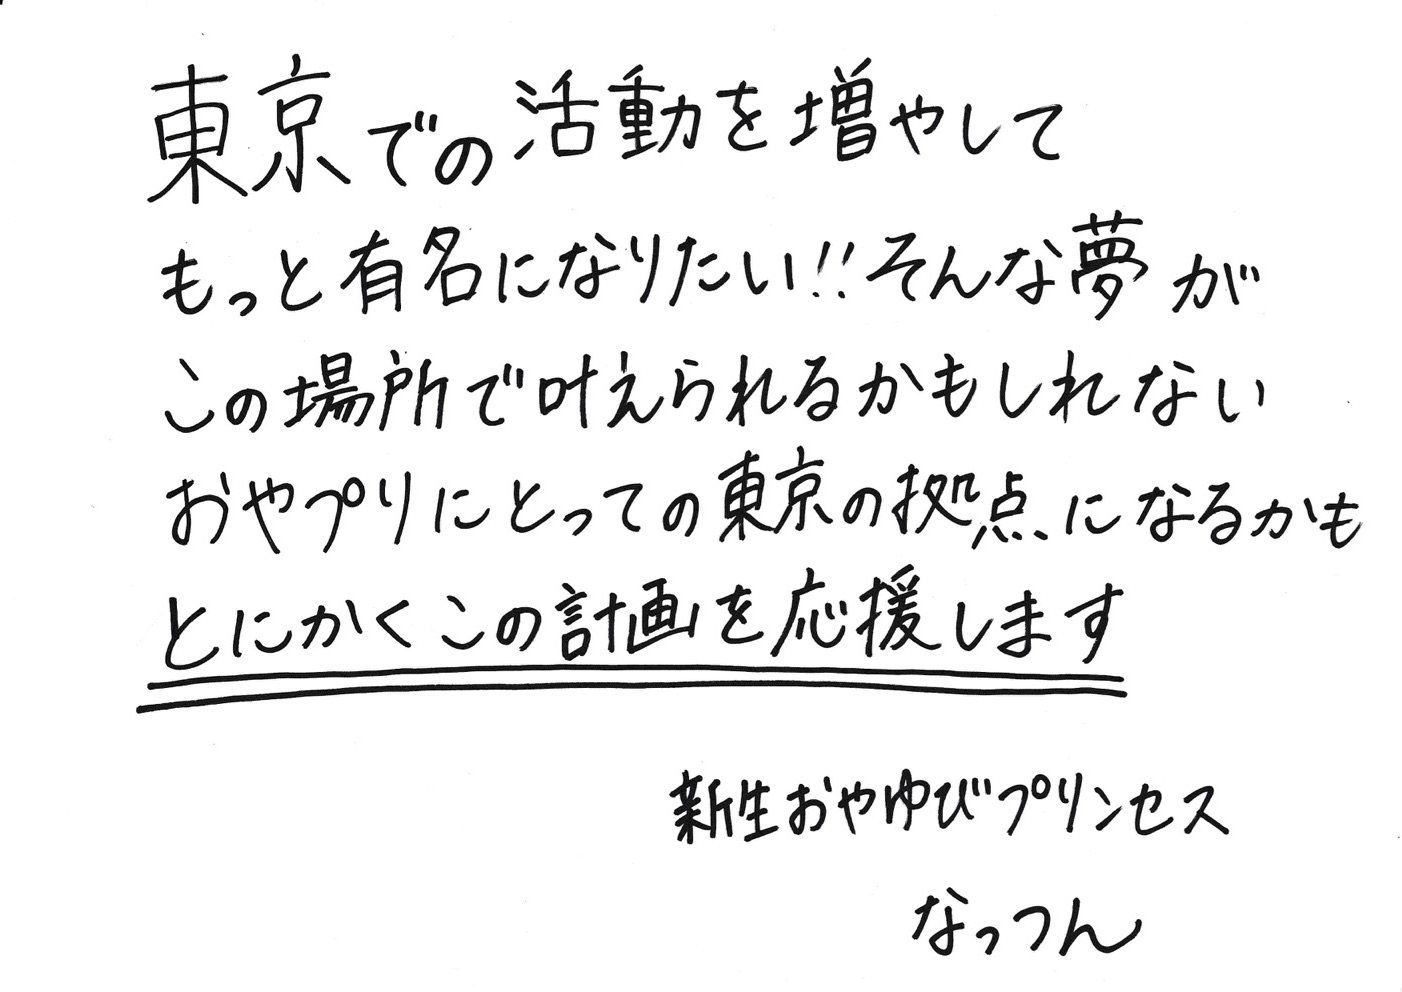 東京での活動を増やして
もっと有名になりたい!!そんな夢が
この場所で叶えられるかもしれない
おやプリにとっての東京の拠点になるかも
とにかくこの計画を応援します
新生おやゆびプリンセス
なっつん